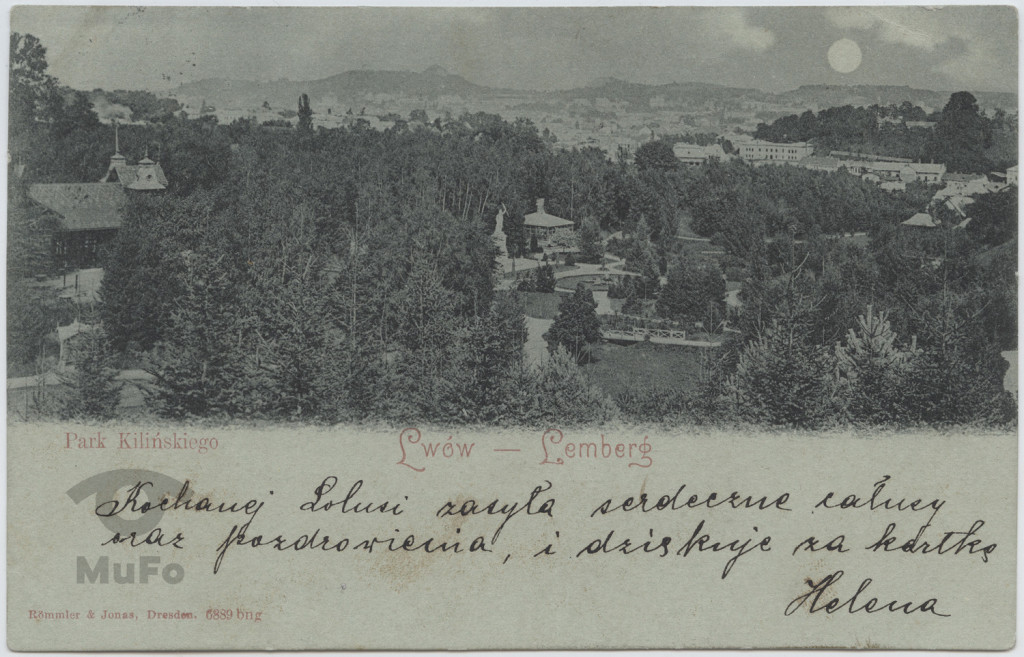 Park Kilińskiego
Lwów — Lemberg
Kochanej Lolusi zasyła serdeczne całusy
oraz pozdrowienia, i dziękuje za kartkę
Helena
MuFo
Römmler & Jonas, Dresden. 6889 bng